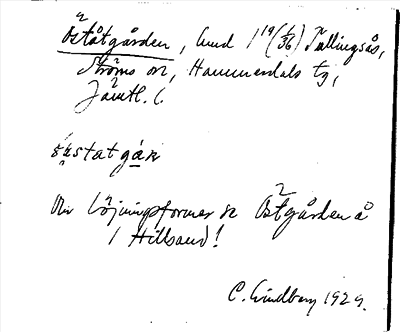 Öståtgården, hmd 1 19(/36) Tullingsås,
Ströms sn, Hammerdals tg,
Jämtl. l.
östatgáɳ
Om böjningsformer se Östgården å
1 Hillsand!
C. Lindberg 1929.